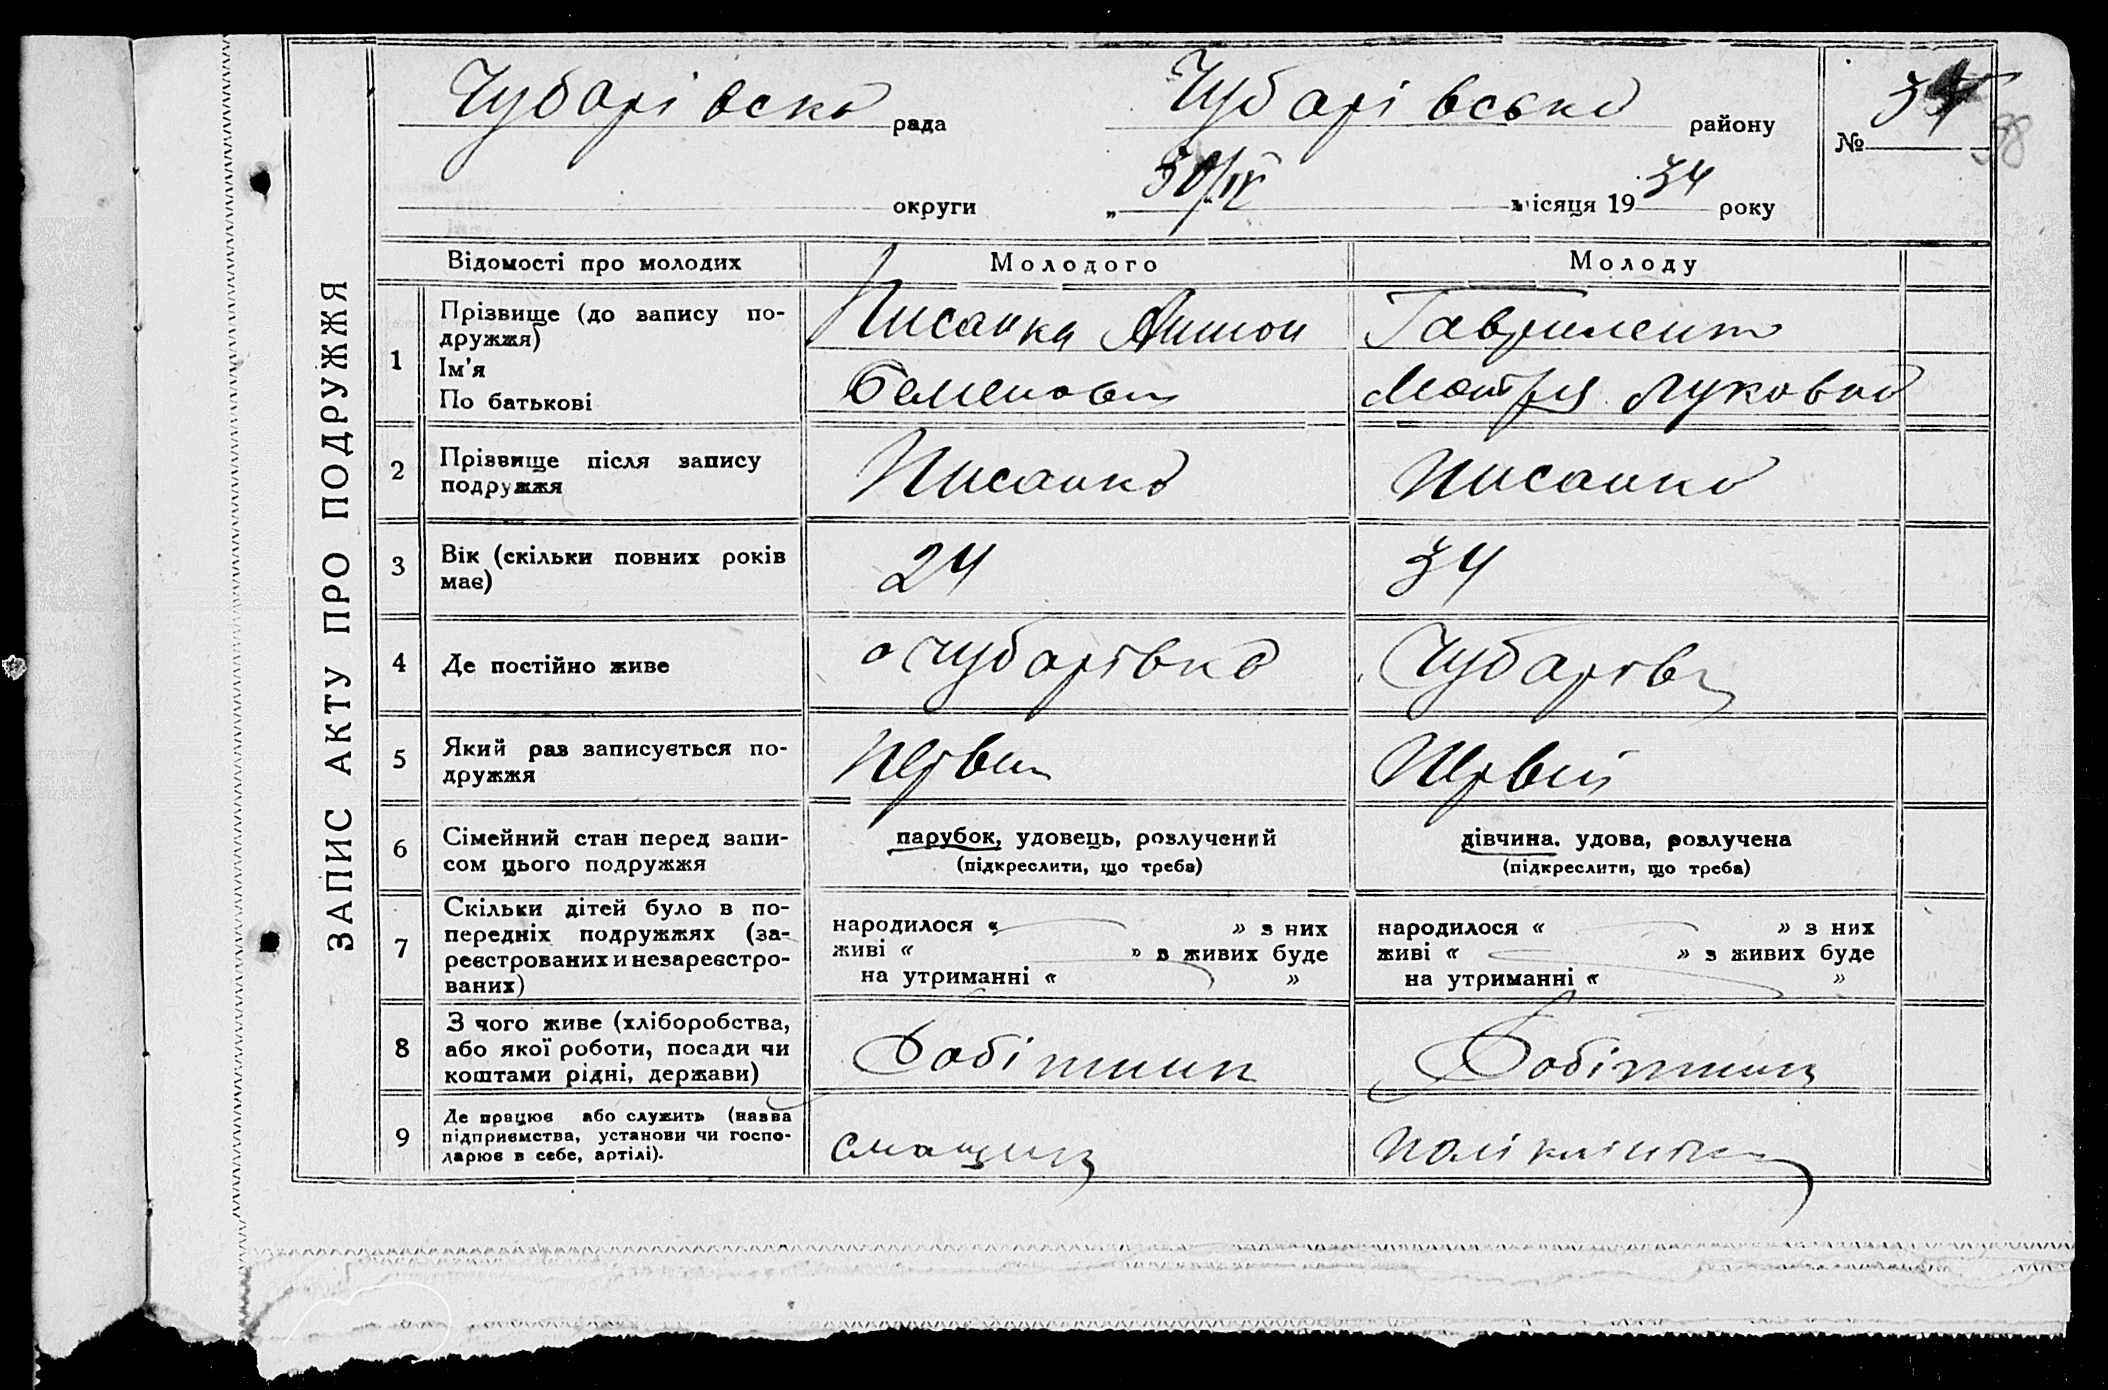 ЗАПИС АКТУ ПРО ПОДРУЖЖЯ
Чубарівська рада
Чубарівсько району
№ 34
98
округи
„30/IV“ місяця 1934 року
Відомості про молодих
Молодого
Молоду
1
Прізвище (до запису по-
дружжя)
Ім'я
По батькові
Писанка Антон
Семенович
Гавриленко
Мотря Луковна
2
Прізвище після запису
подружжя
Писанка
Писанка
3
Вік (скільки повних років
має)
24
34
4
Де постійно живе
Чубарівка
Чубарівка
5
Який раз записується по-
дружжя
Первий
Первий
6
Сімейний стан перед запи-
сом цього подружжя
парубок, удовець, розлучений
(підкреслити, що треба)
дівчина. удова, розлучена
(підкреслити, що треба)
7
Скільки дітей було в по-
передніх подружжях (за-
реєстрованих и незареєстро-
ваних)
народилося « » з них
живі « » з живих буде
на утриманні « »
народилося « » з них
живі « » з живих буде
на утриманні « »
8
З чого живе (хліборобства,
або якої роботи, посади чи
коштами рідні, держави)
Робітник
Робітниця
9
Де працює або служить (назва
підприємства, установи чи госпо-
дарює в себе, артілі).
смащик
полікликніка